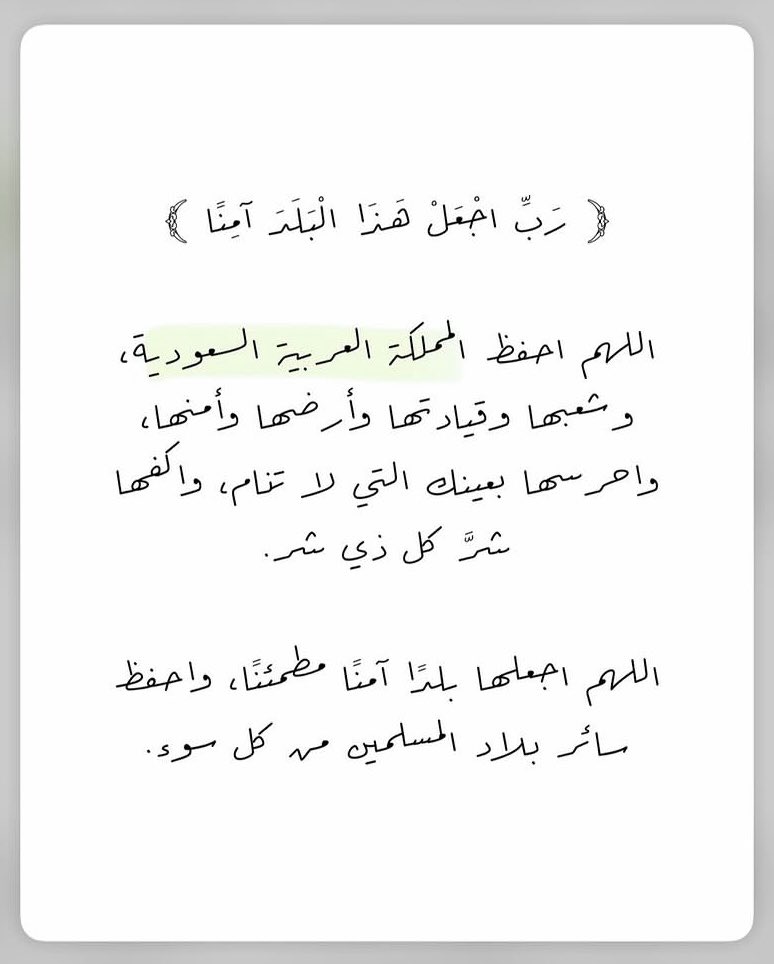 ﴿ رَبِّ اجْعَلْ هَذَا الْبَلَدَ آمِنًا ﴾
اللهم احفظ المملكة العربية السعودية،
وشعبها وقيادتها وأرضها وأمنها،
واحرسها بعينك التي لا تنام، واكفها
شرَّ كل ذي شر.
اللهم اجعلها بلدًا آمنًا مطمئنًا، واحفظ
سائر بلاد المسلمين من كل سوء.